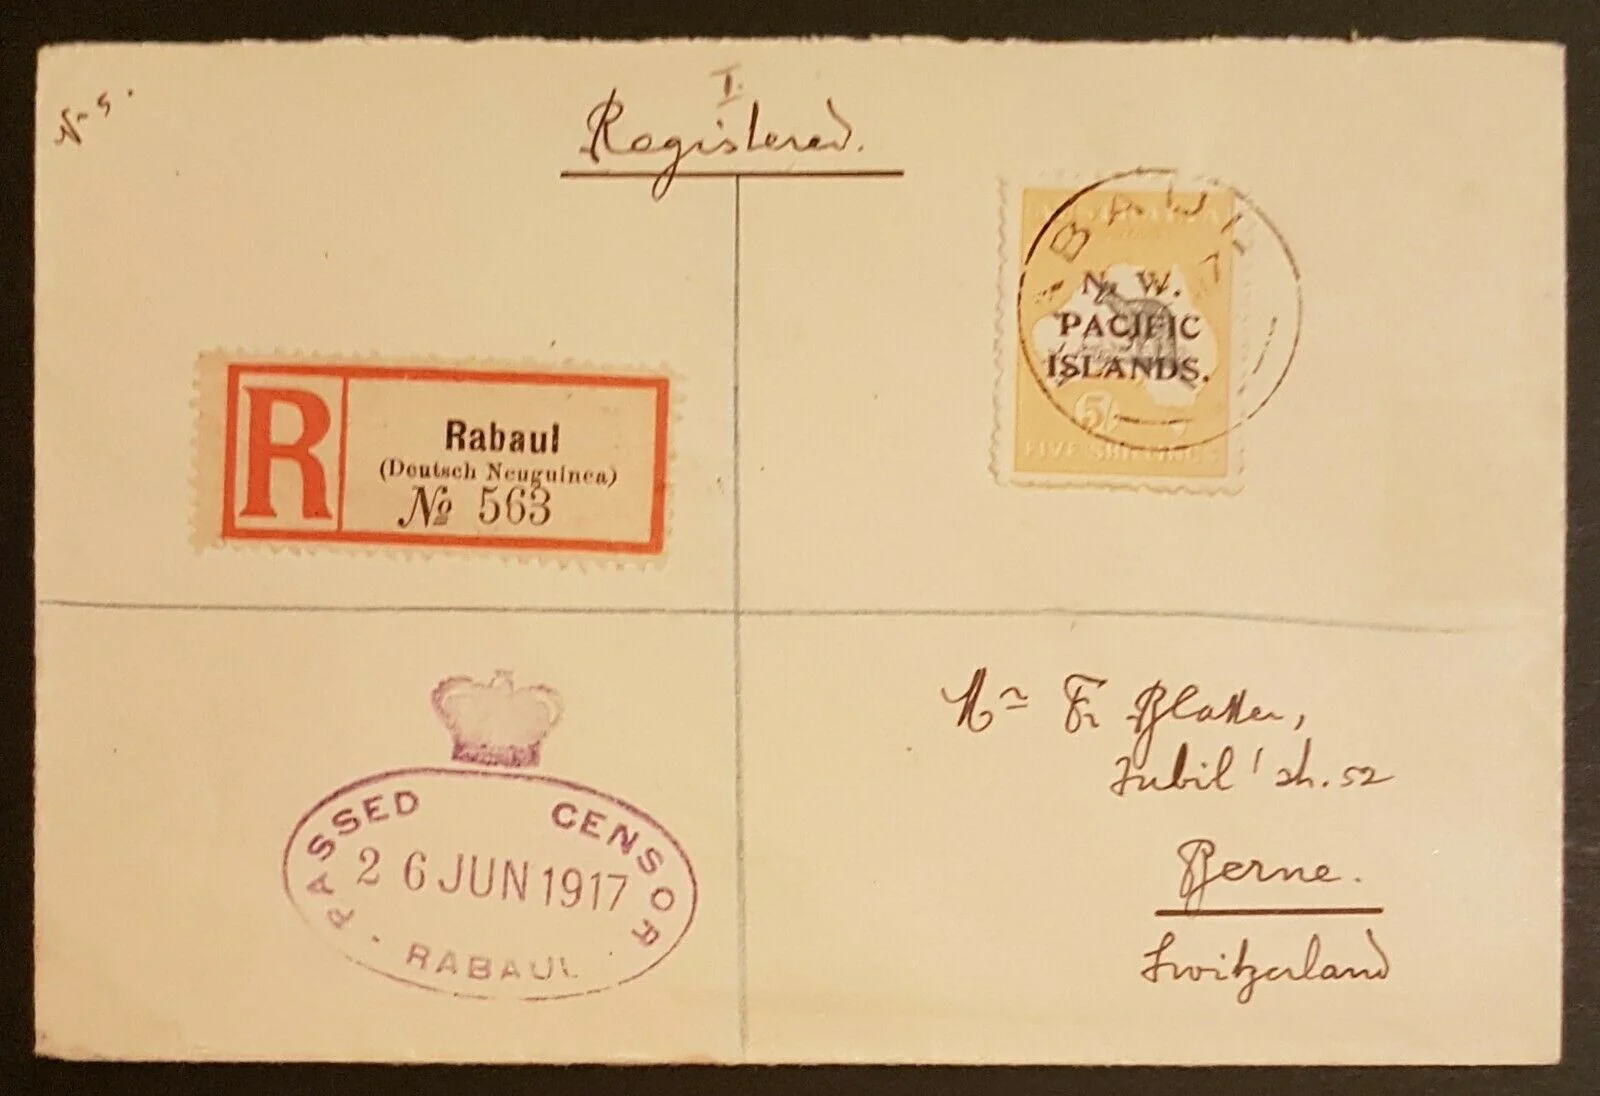 I.
Registered.
RABAUL
17
AUSTRALIA
N. W.
PACIFIC
ISLANDS.
5/-
FIVE SHILLINGS
R
Rabaul
(Deutsch Neuguinea)
No 563
PASSED CENSOR
26 JUN 1917
RABAUL
Mr F. Blatter,
Jubil' str. 52
Berne.
Switzerland